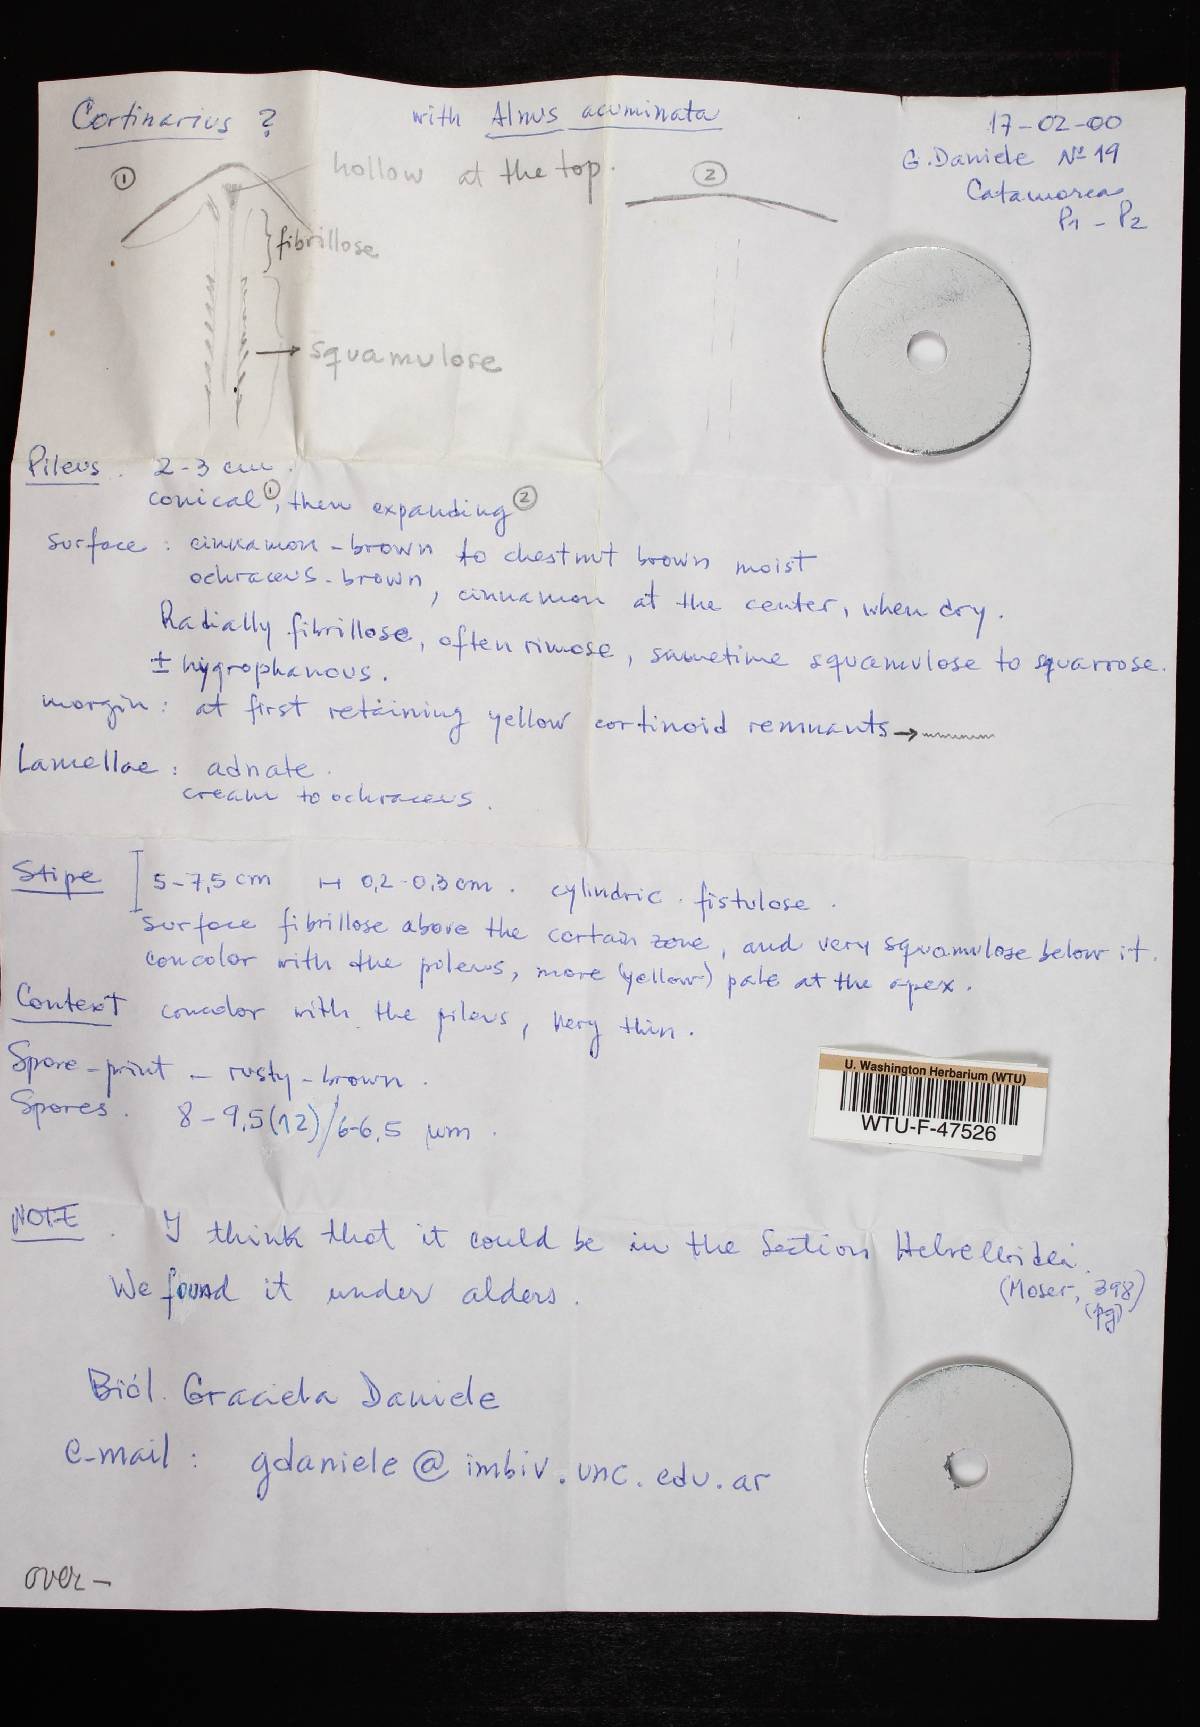 Cortinarius ?
with Alnus acuminata
17-02-00
G. Daniele Nº 19
Catamarca
P1 - P2
①
hollow at the top.
②
fibrillose
squamulose
Pileus. 2-3 cm.
conical ①, then expanding ②
surface: cinnamon-brown to chestnut brown moist
ochraceus-brown, cinnamon at the center, when dry.
Radially fibrillose, often rimose, sometime squamulose to squarrose.
± hygrophanous.
margin: at first retaining yellow cortinoid remnants →
Lamellae: adnate.
cream to ochraceus.
Stipe 5-7,5 cm ⊢⊣ 0,2-0,3 cm. cylindric. fistulose.
surface fibrillose above the cortain zone, and very squamulose below it.
concolor with the pileus, more (yellow) pale at the apex.
Context concolor with the pileus, very thin.
Spore-print - rusty-brown.
Spores. 8-9,5(12)/6-6,5 µm.
U. Washington Herbarium (WTU)
WTU-F-47526
NOTE. I think that it could be in the Section Helvelloidei.
(Moser, 398)
(pg)
We found it under alders.
Biól. Graciela Daniele
e-mail: gdaniele@imbiv.unc.edu.ar
over-